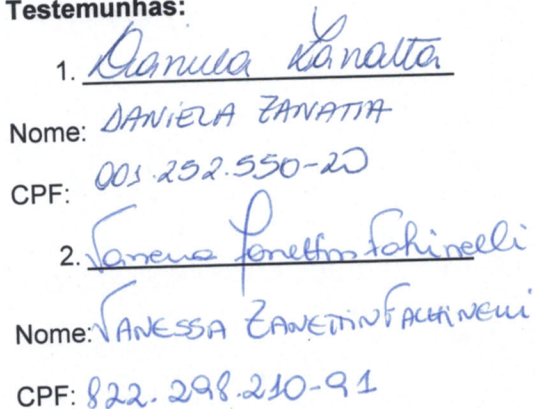 Testemunhas:
1. Daniela Zanatta
Nome: DANIELA ZANATTA
CPF: 001.252.550-20
2. Vanessa Zanettin Fachinelli
Nome: VANESSA ZANETTIN FACHINELLI
CPF: 822.298.210-91